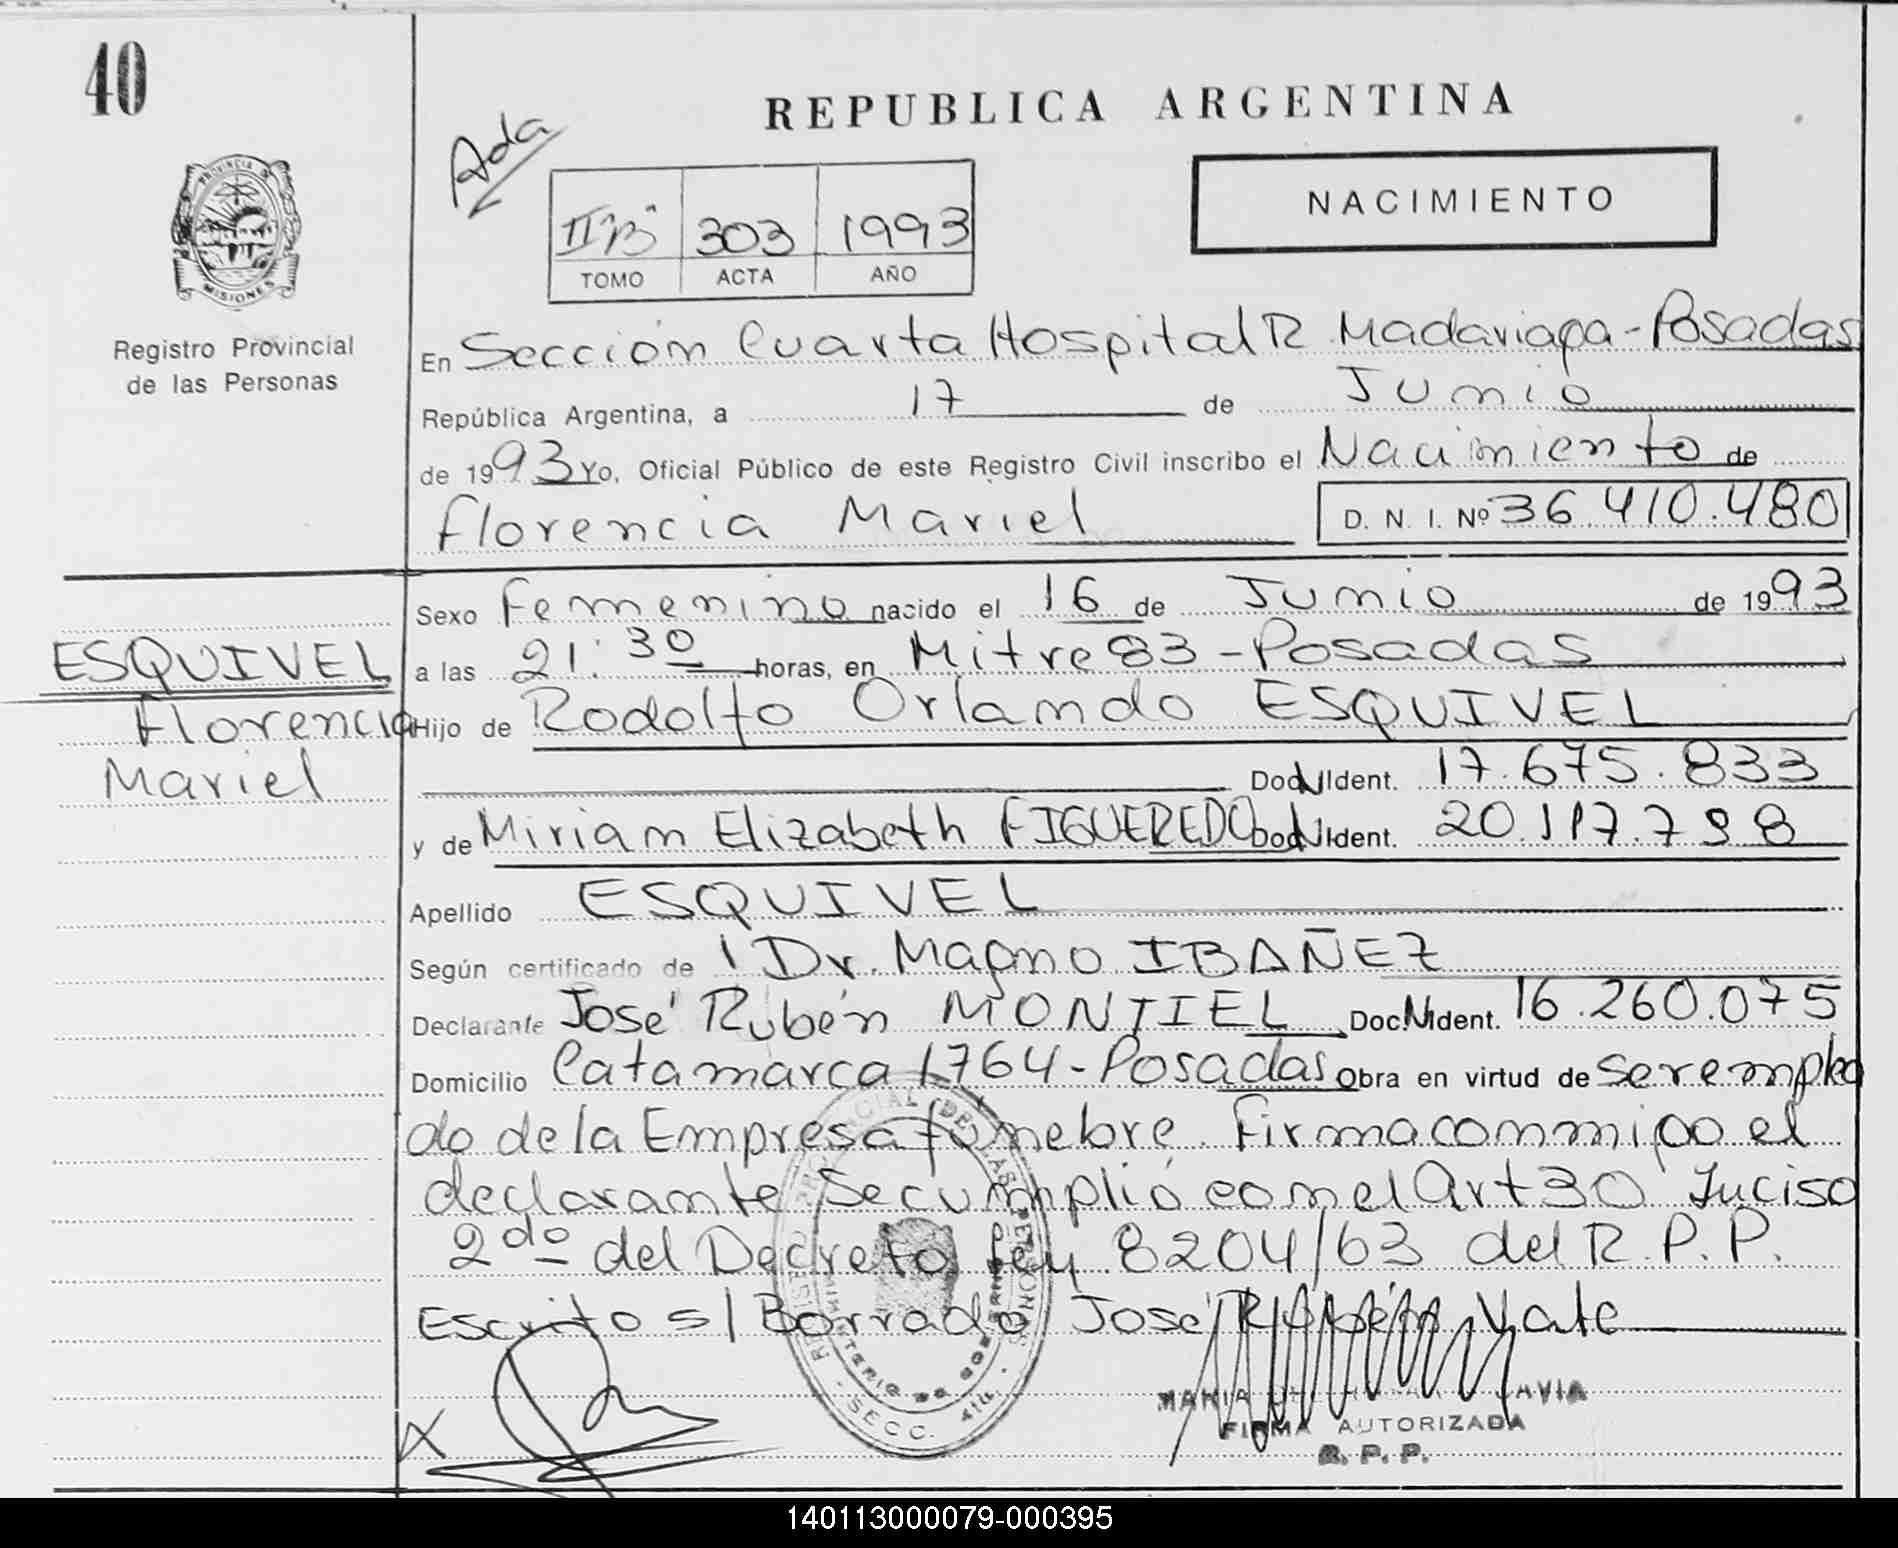 40
REPUBLICA ARGENTINA
Ada
NACIMIENTO
II "B" 303 1993
TOMO ACTA AÑO
PROVINCIA DE
MISIONES
Registro Provincial
de las Personas
En Sección Cuarta Hospital R Madariaga - Posadas
República Argentina, a 17 de Junio
de 1993 Yo, Oficial Público de este Registro Civil inscribo el Nacimiento de
Florencia Mariel D. N. I. Nº 36.410.480
Sexo Femenino nacido el 16 de Junio de 1993
ESQUIVEL
Florencia
Mariel
a las 21:30 horas, en Mitre 83 - Posadas
Hijo de Rodolfo Orlando ESQUIVEL
Doc NIdent. 17.675.833
y de Miriam Elizabeth FIGUEREDO Doc NIdent. 20.117.798
Apellido ESQUIVEL
Según certificado de Dr. Magno IBAÑEZ
Declarante José Rubén MONTIEL Doc. NIdent. 16.260.075
Domicilio Catamarca 1764 - Posadas Obra en virtud de ser emplea
do de la Empresa fúnebre. Firma conmigo el
declarante Se cumplió con el Art 30 Inciso
2do del Decreto Ley 8204/63 del R.P.P.
Escrito s/ Borrado José Rubén Vale
SECC. 4ta.
MARIA
FIRMA AUTORIZADA
R. P. P.
X
140113000079-000395